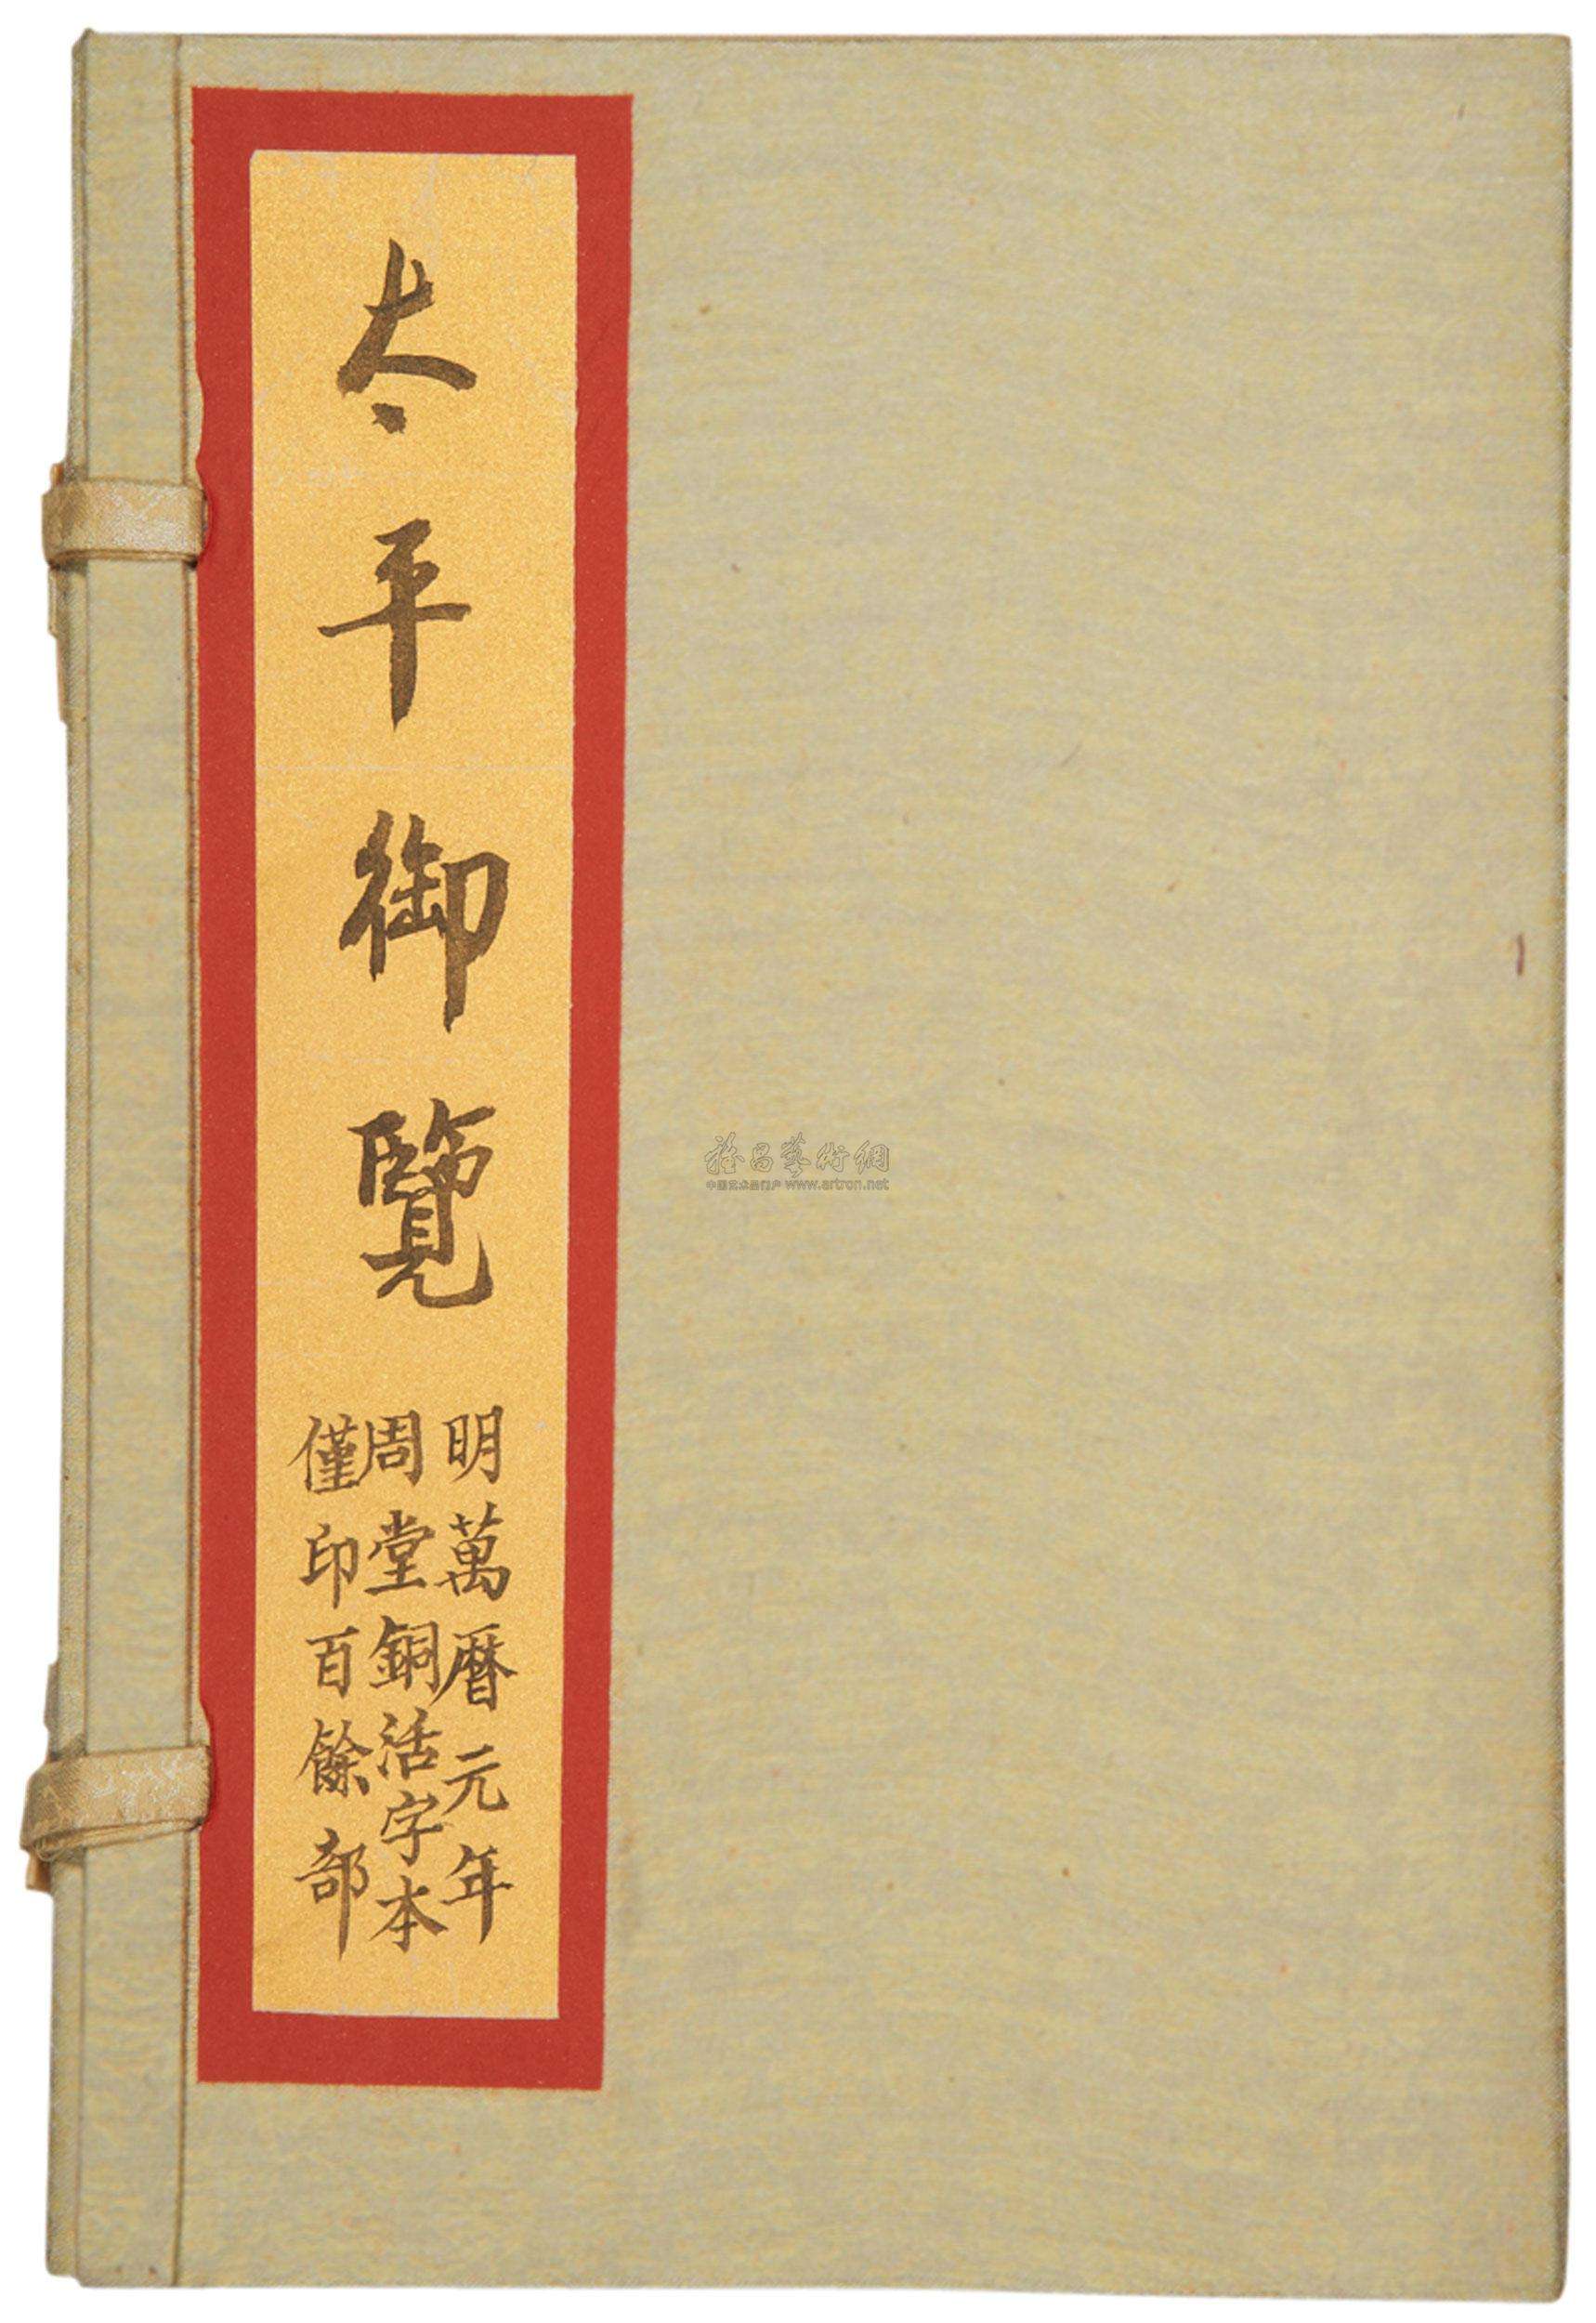 太平御覽
明萬曆元年
周堂銅活字本
僅印百餘部
雅昌藝術網
中国艺术品门户 www.artron.net